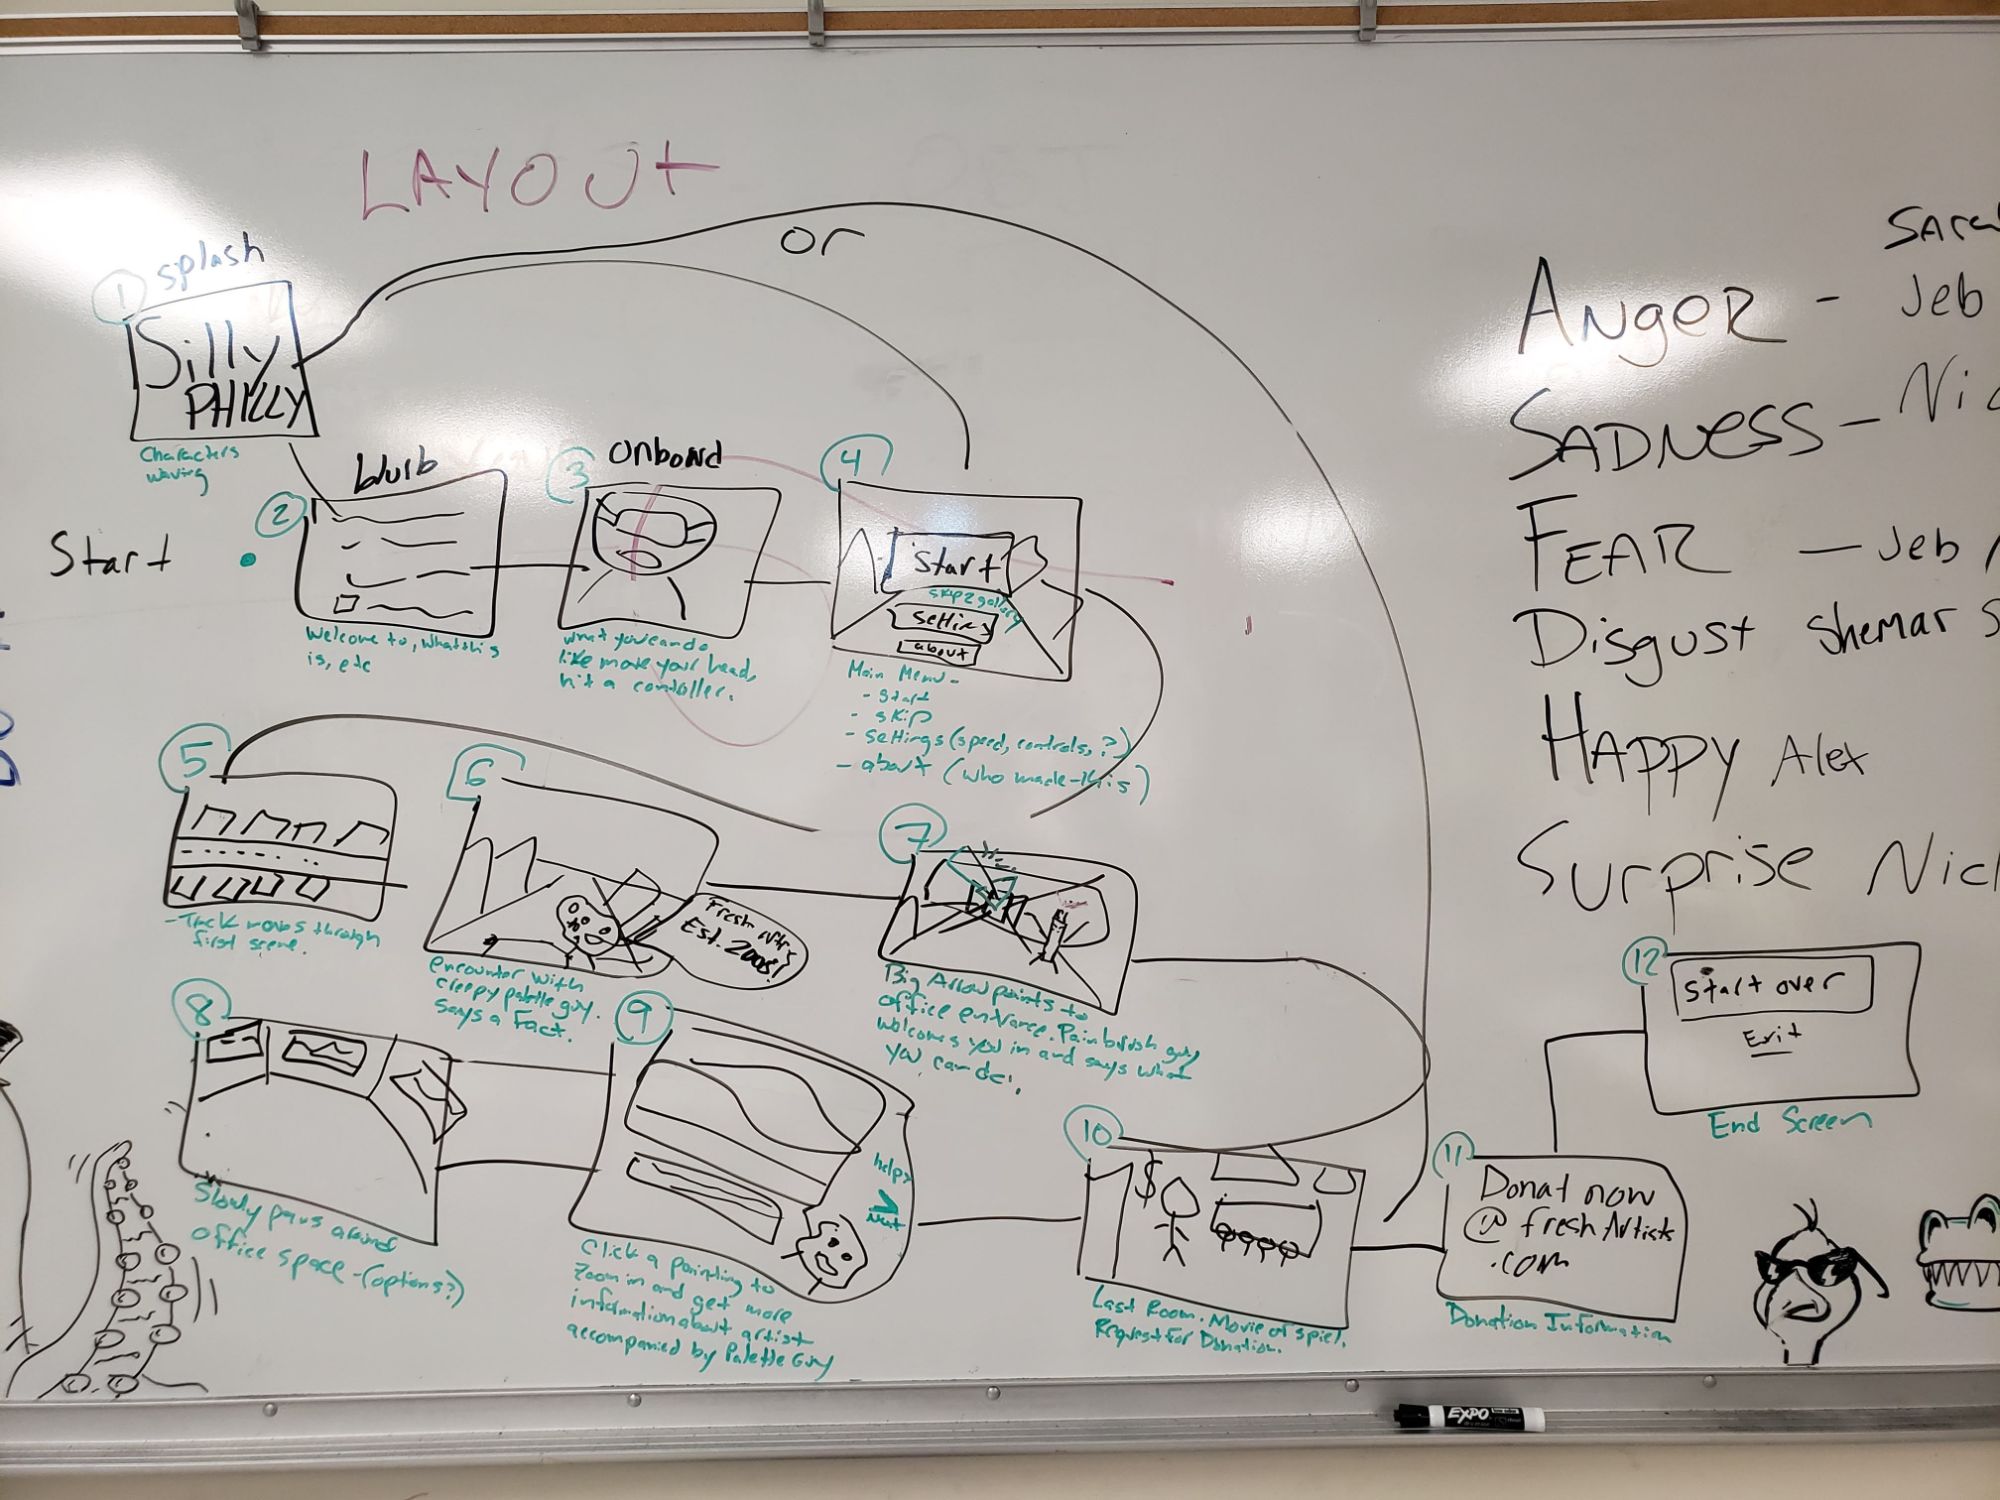 LAYOUT
or
1
splash
Silly
PHILLY
Characters
waving
Start
2
blurb
Welcome to, what this
is, etc
3
onboard
what you can do
like move your head,
hit a controller.
4
Start
skip 2 gallery
settings
about
Main Menu -
- start
- skip
- settings (speed, controls, ?)
- about (who made this)
5
- Track moves through
first scene.
6
Fresh Artists
Est. 2008!
encounter with
creepy palette guy.
says a fact.
7
Big Arrow points to
office entrance. Painbrush guy
welcomes you in and says what
you can do.
8
Slowly pans around
office space - (options?)
9
help?
Next
Click a painting to
zoom in and get more
information about artist
accompanied by Palette Guy
10
$
Last Room. Movie of spiel.
Request for Donation.
11
Donat now
@ freshArtists
.com
Donation Information
12
Start over
Exit
End Screen
ANGER - Jeb
SADNESS -
FEAR - Jeb
Disgust Shemar
HAPPY Alex
Surprise
EXPO